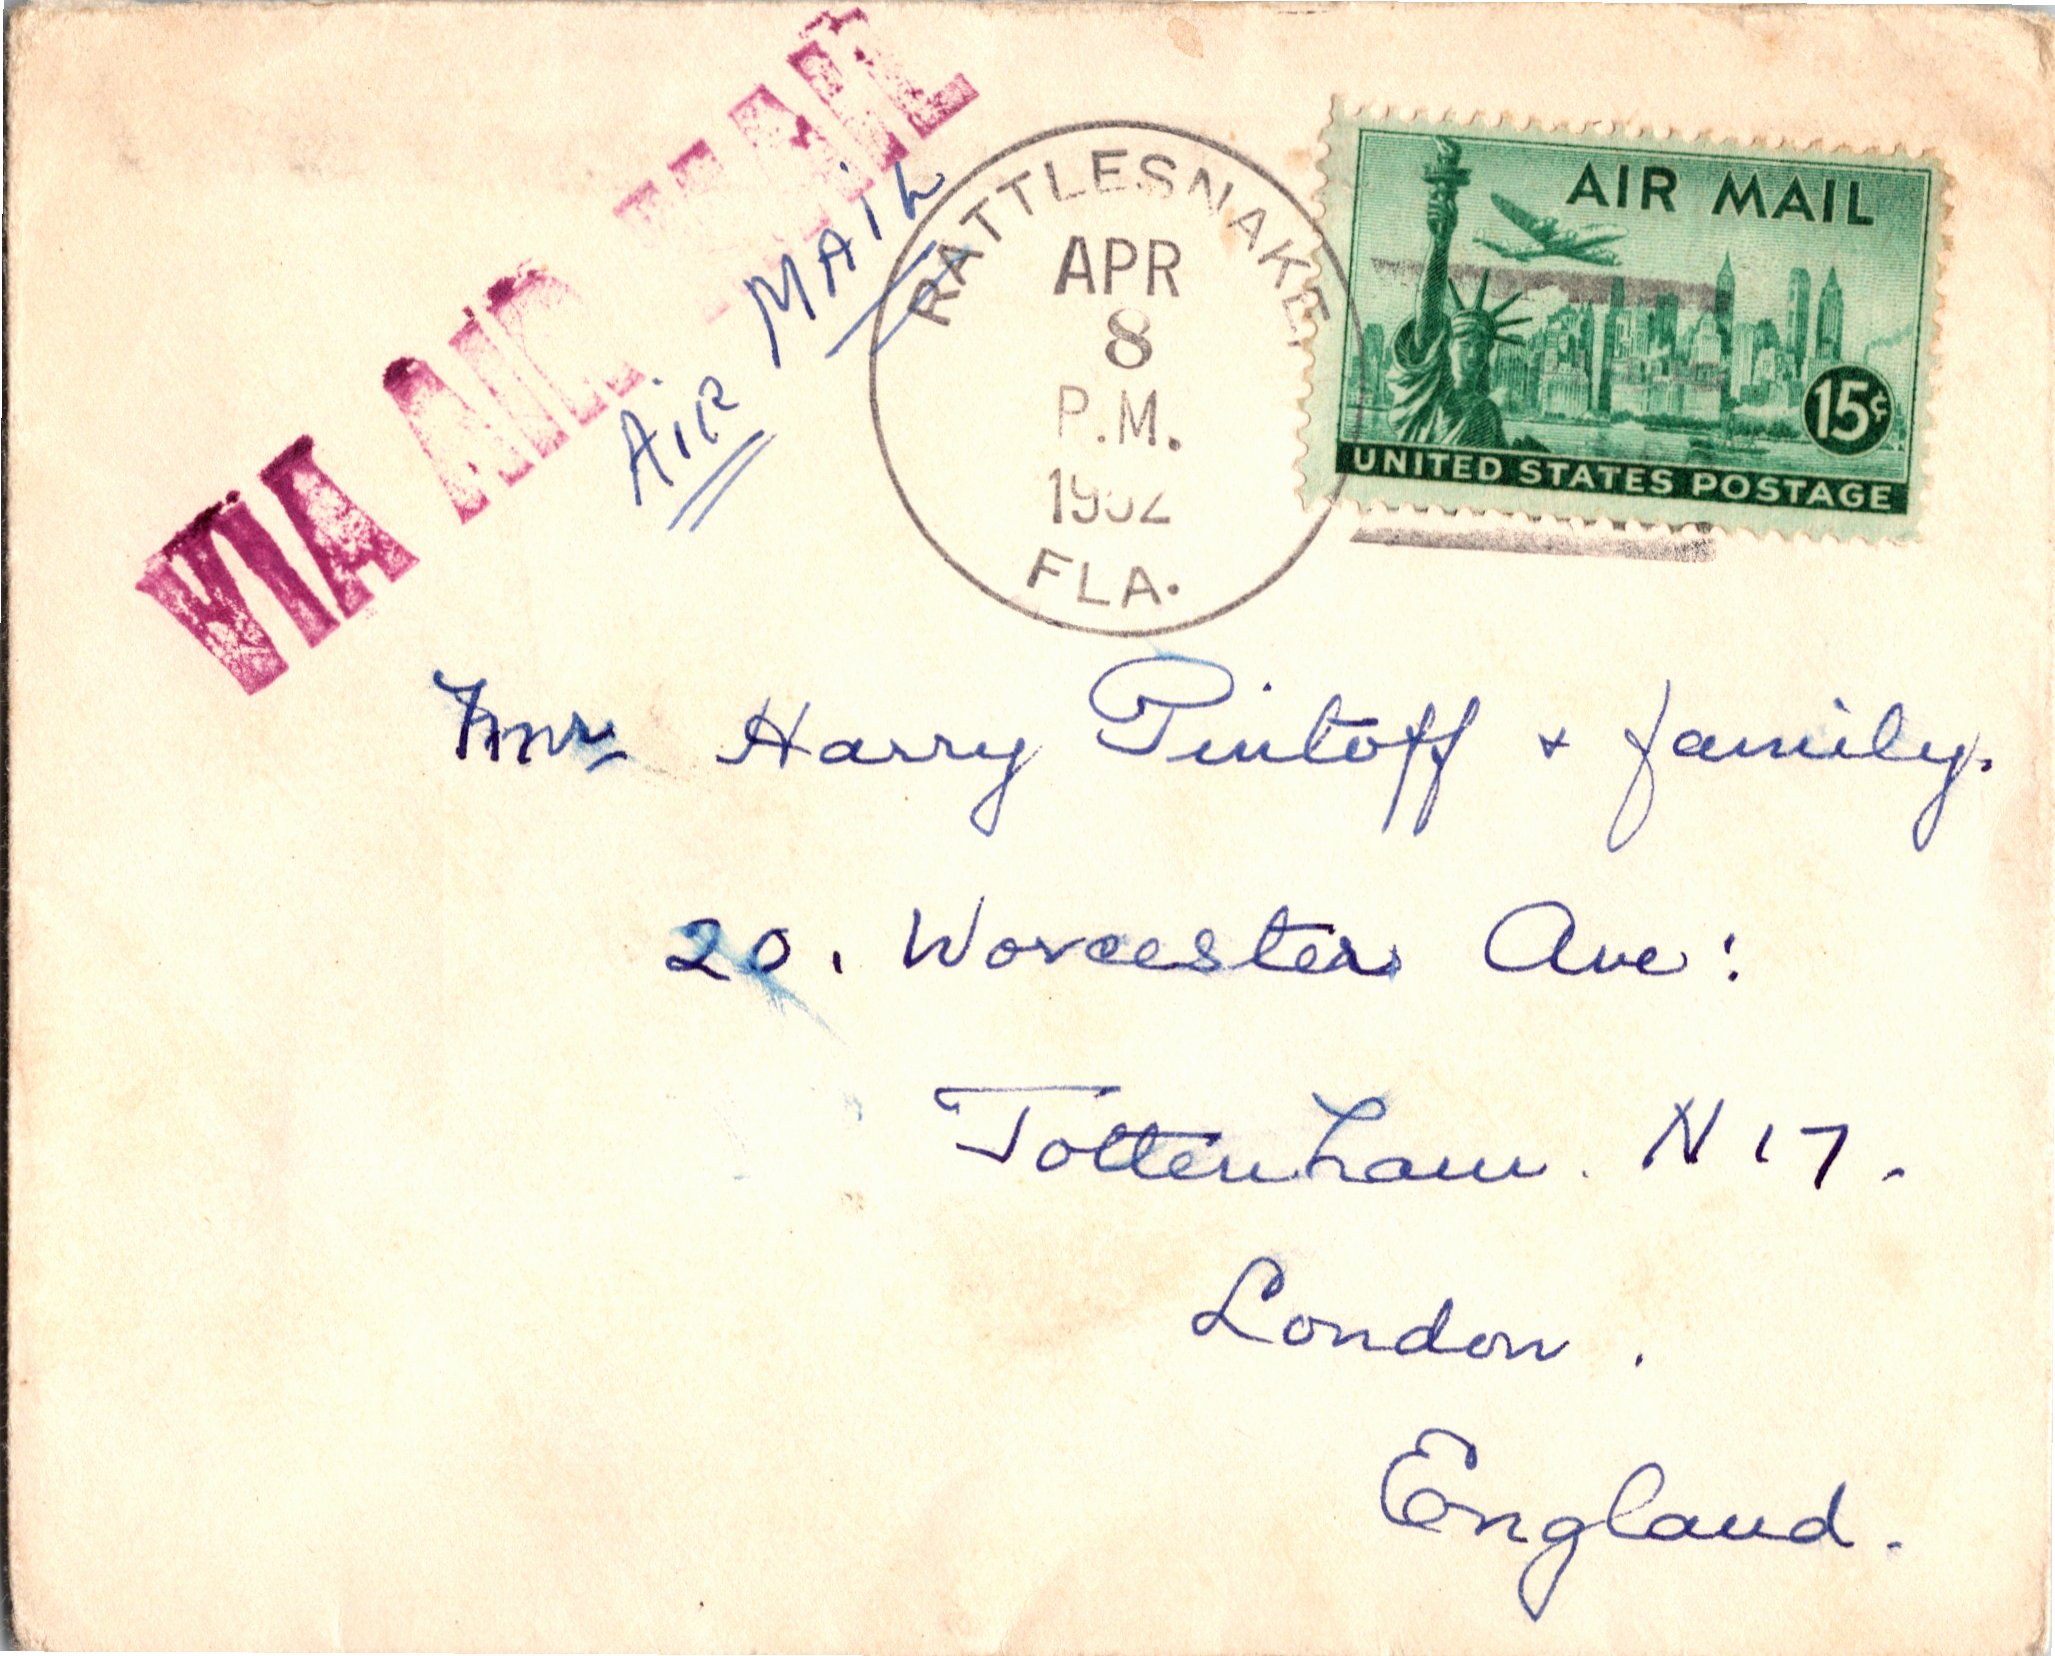 VIA AIR MAIL
AIR MAIL
RATTLESNAKE
APR
8
P.M.
1952
FLA.
AIR MAIL
15¢
UNITED STATES POSTAGE
Mr Harry Pintoff + family.
20, Worcester Ave:
Tottenham. N 17.
London.
England.